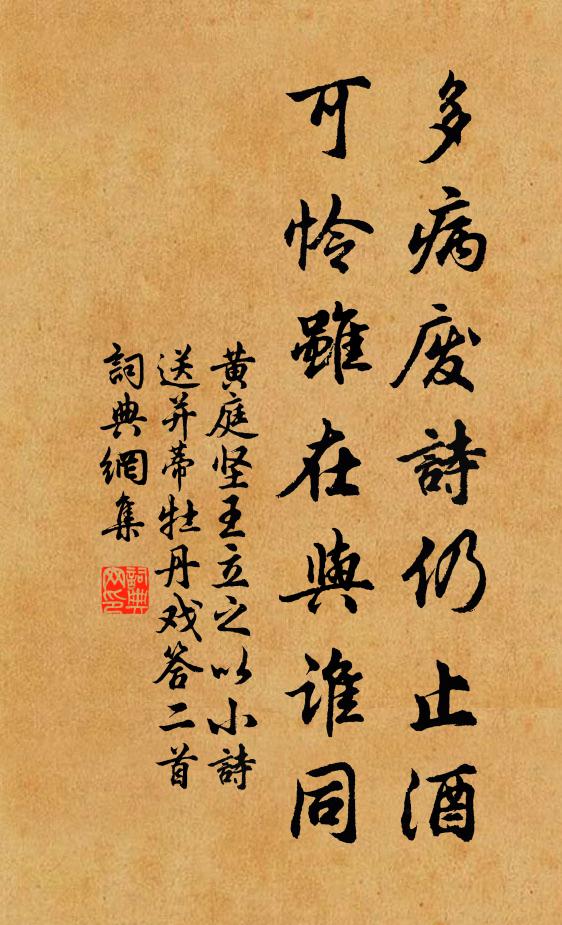 多病废詩仍止酒
可怜雖在與谁同
黄庭坚王立之以小詩
送并蒂牡丹戏答二首
詞典網集
詞典
网印